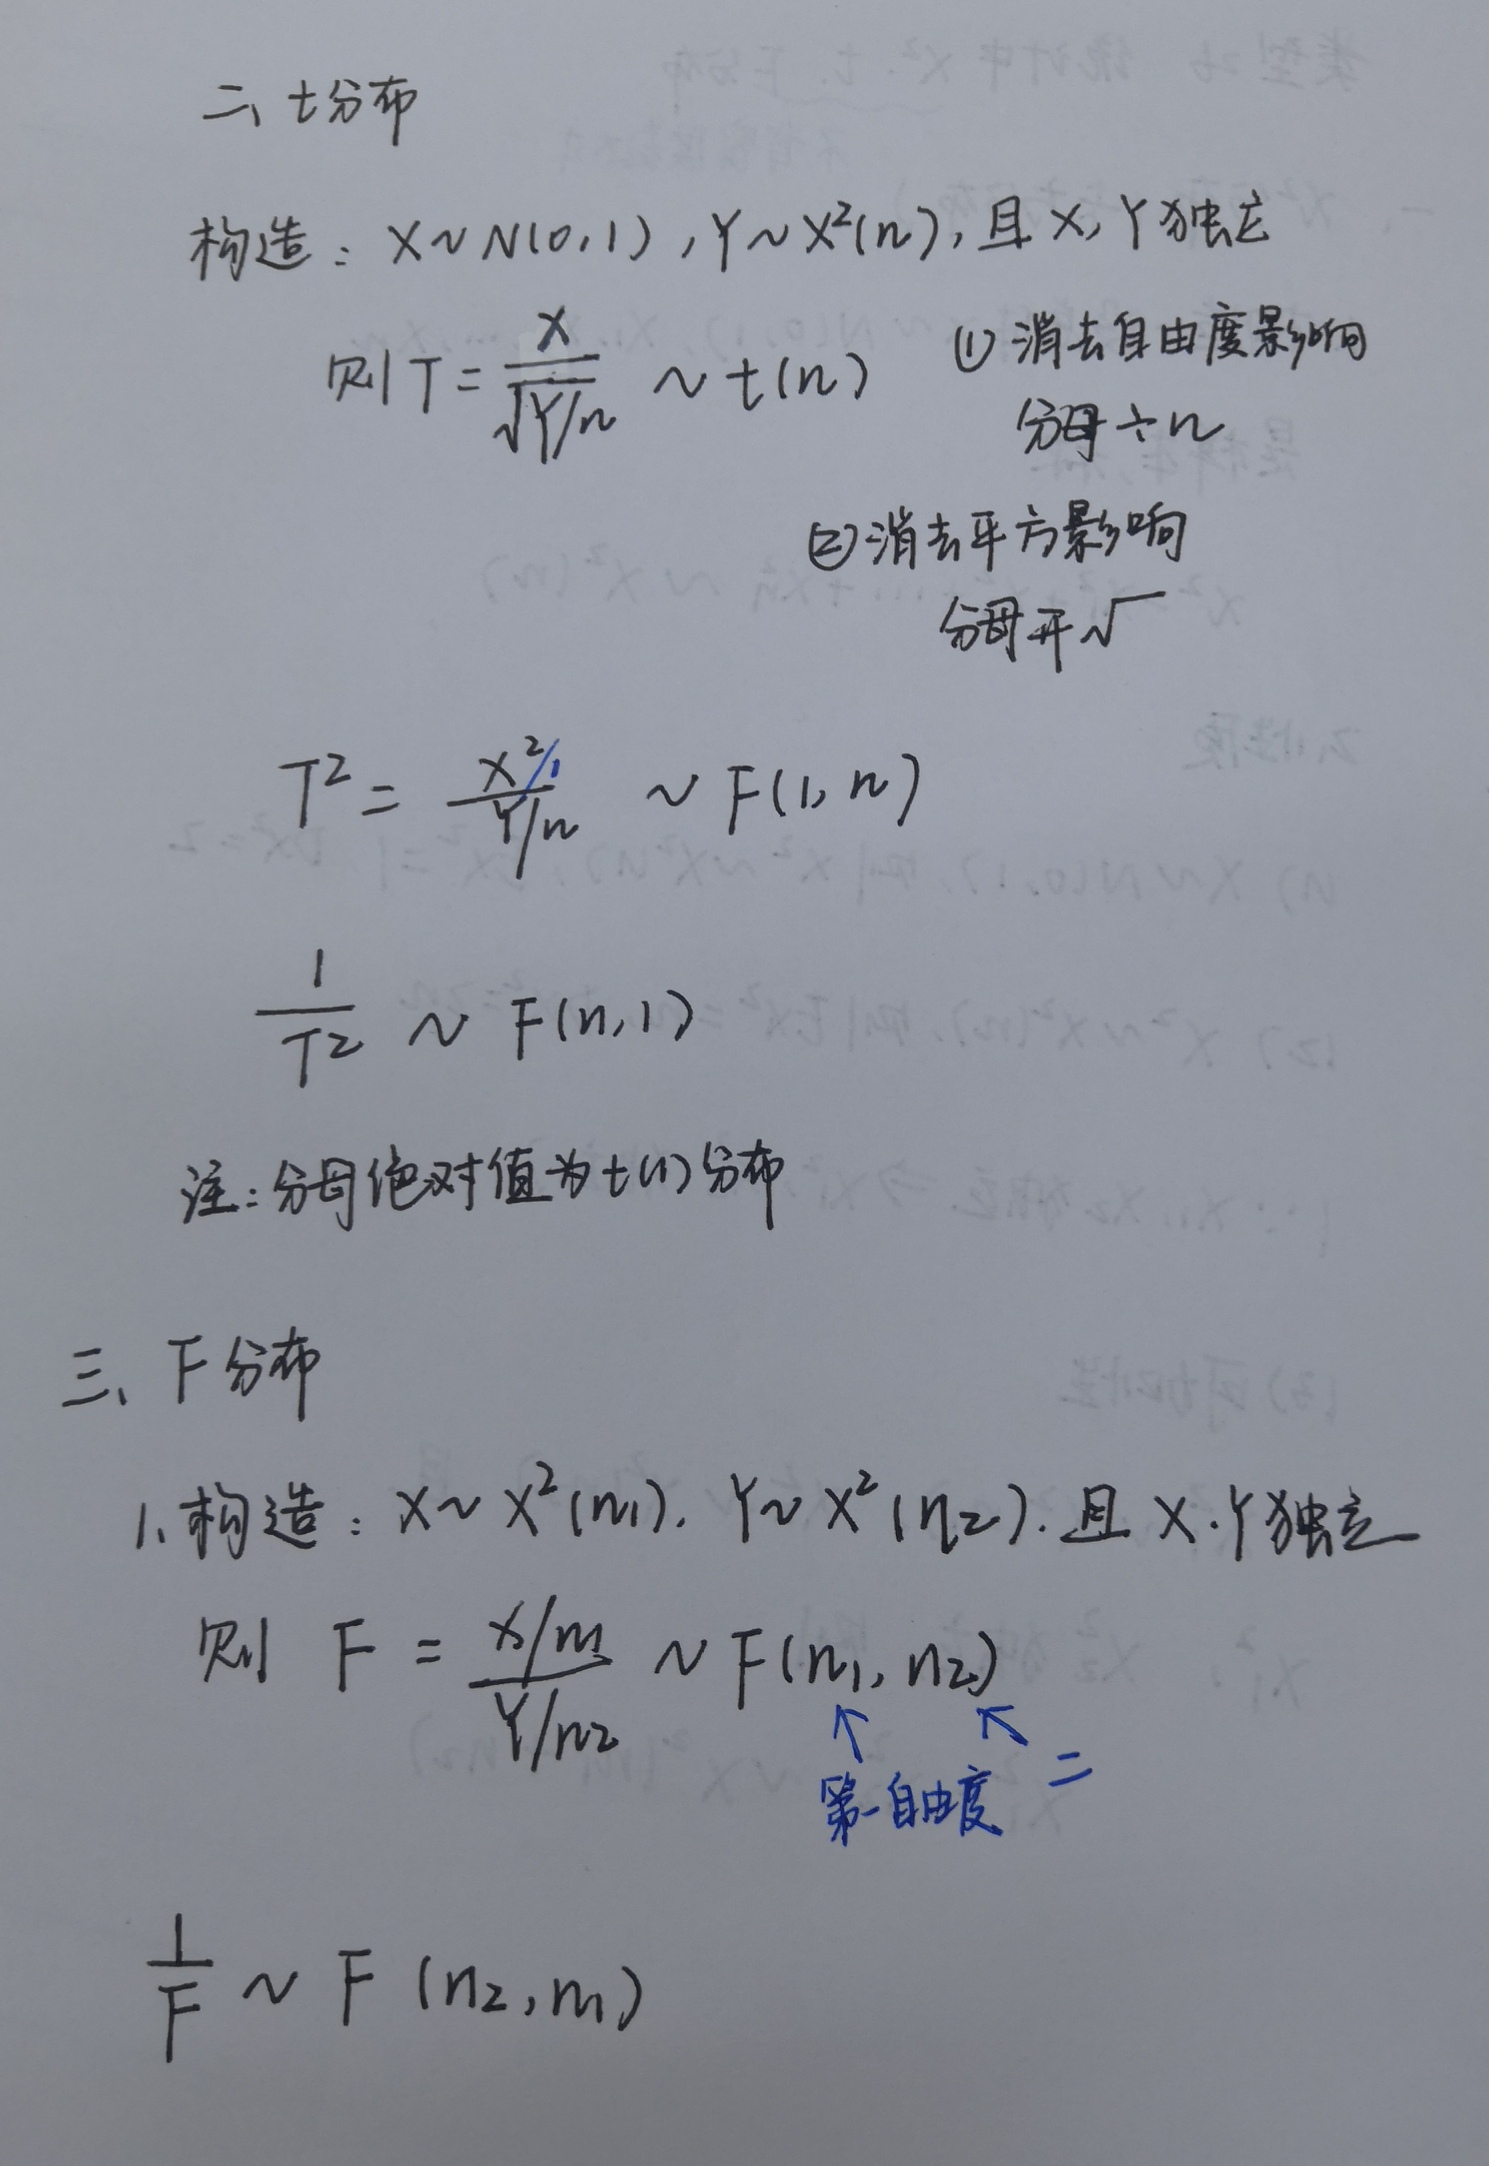 二、t分布
构造：X~N(0,1),Y~X²(n),且X,Y独立
则T=X/√(Y/n) ~ t(n)
(1)消去自由度影响
分母÷n
(2)消去平方影响
分母开√
T²= (X²/1)/(Y/n) ~ F(1,n)
1/T² ~ F(n,1)
注:分母绝对值为t(1)分布
三、F分布
1.构造：X~X²(n₁).Y~X²(n₂).且X.Y独立
则 F = (X/n₁)/(Y/n₂) ~ F(n₁,n₂)
第一自由度 二
1/F ~ F(n₂,n₁)